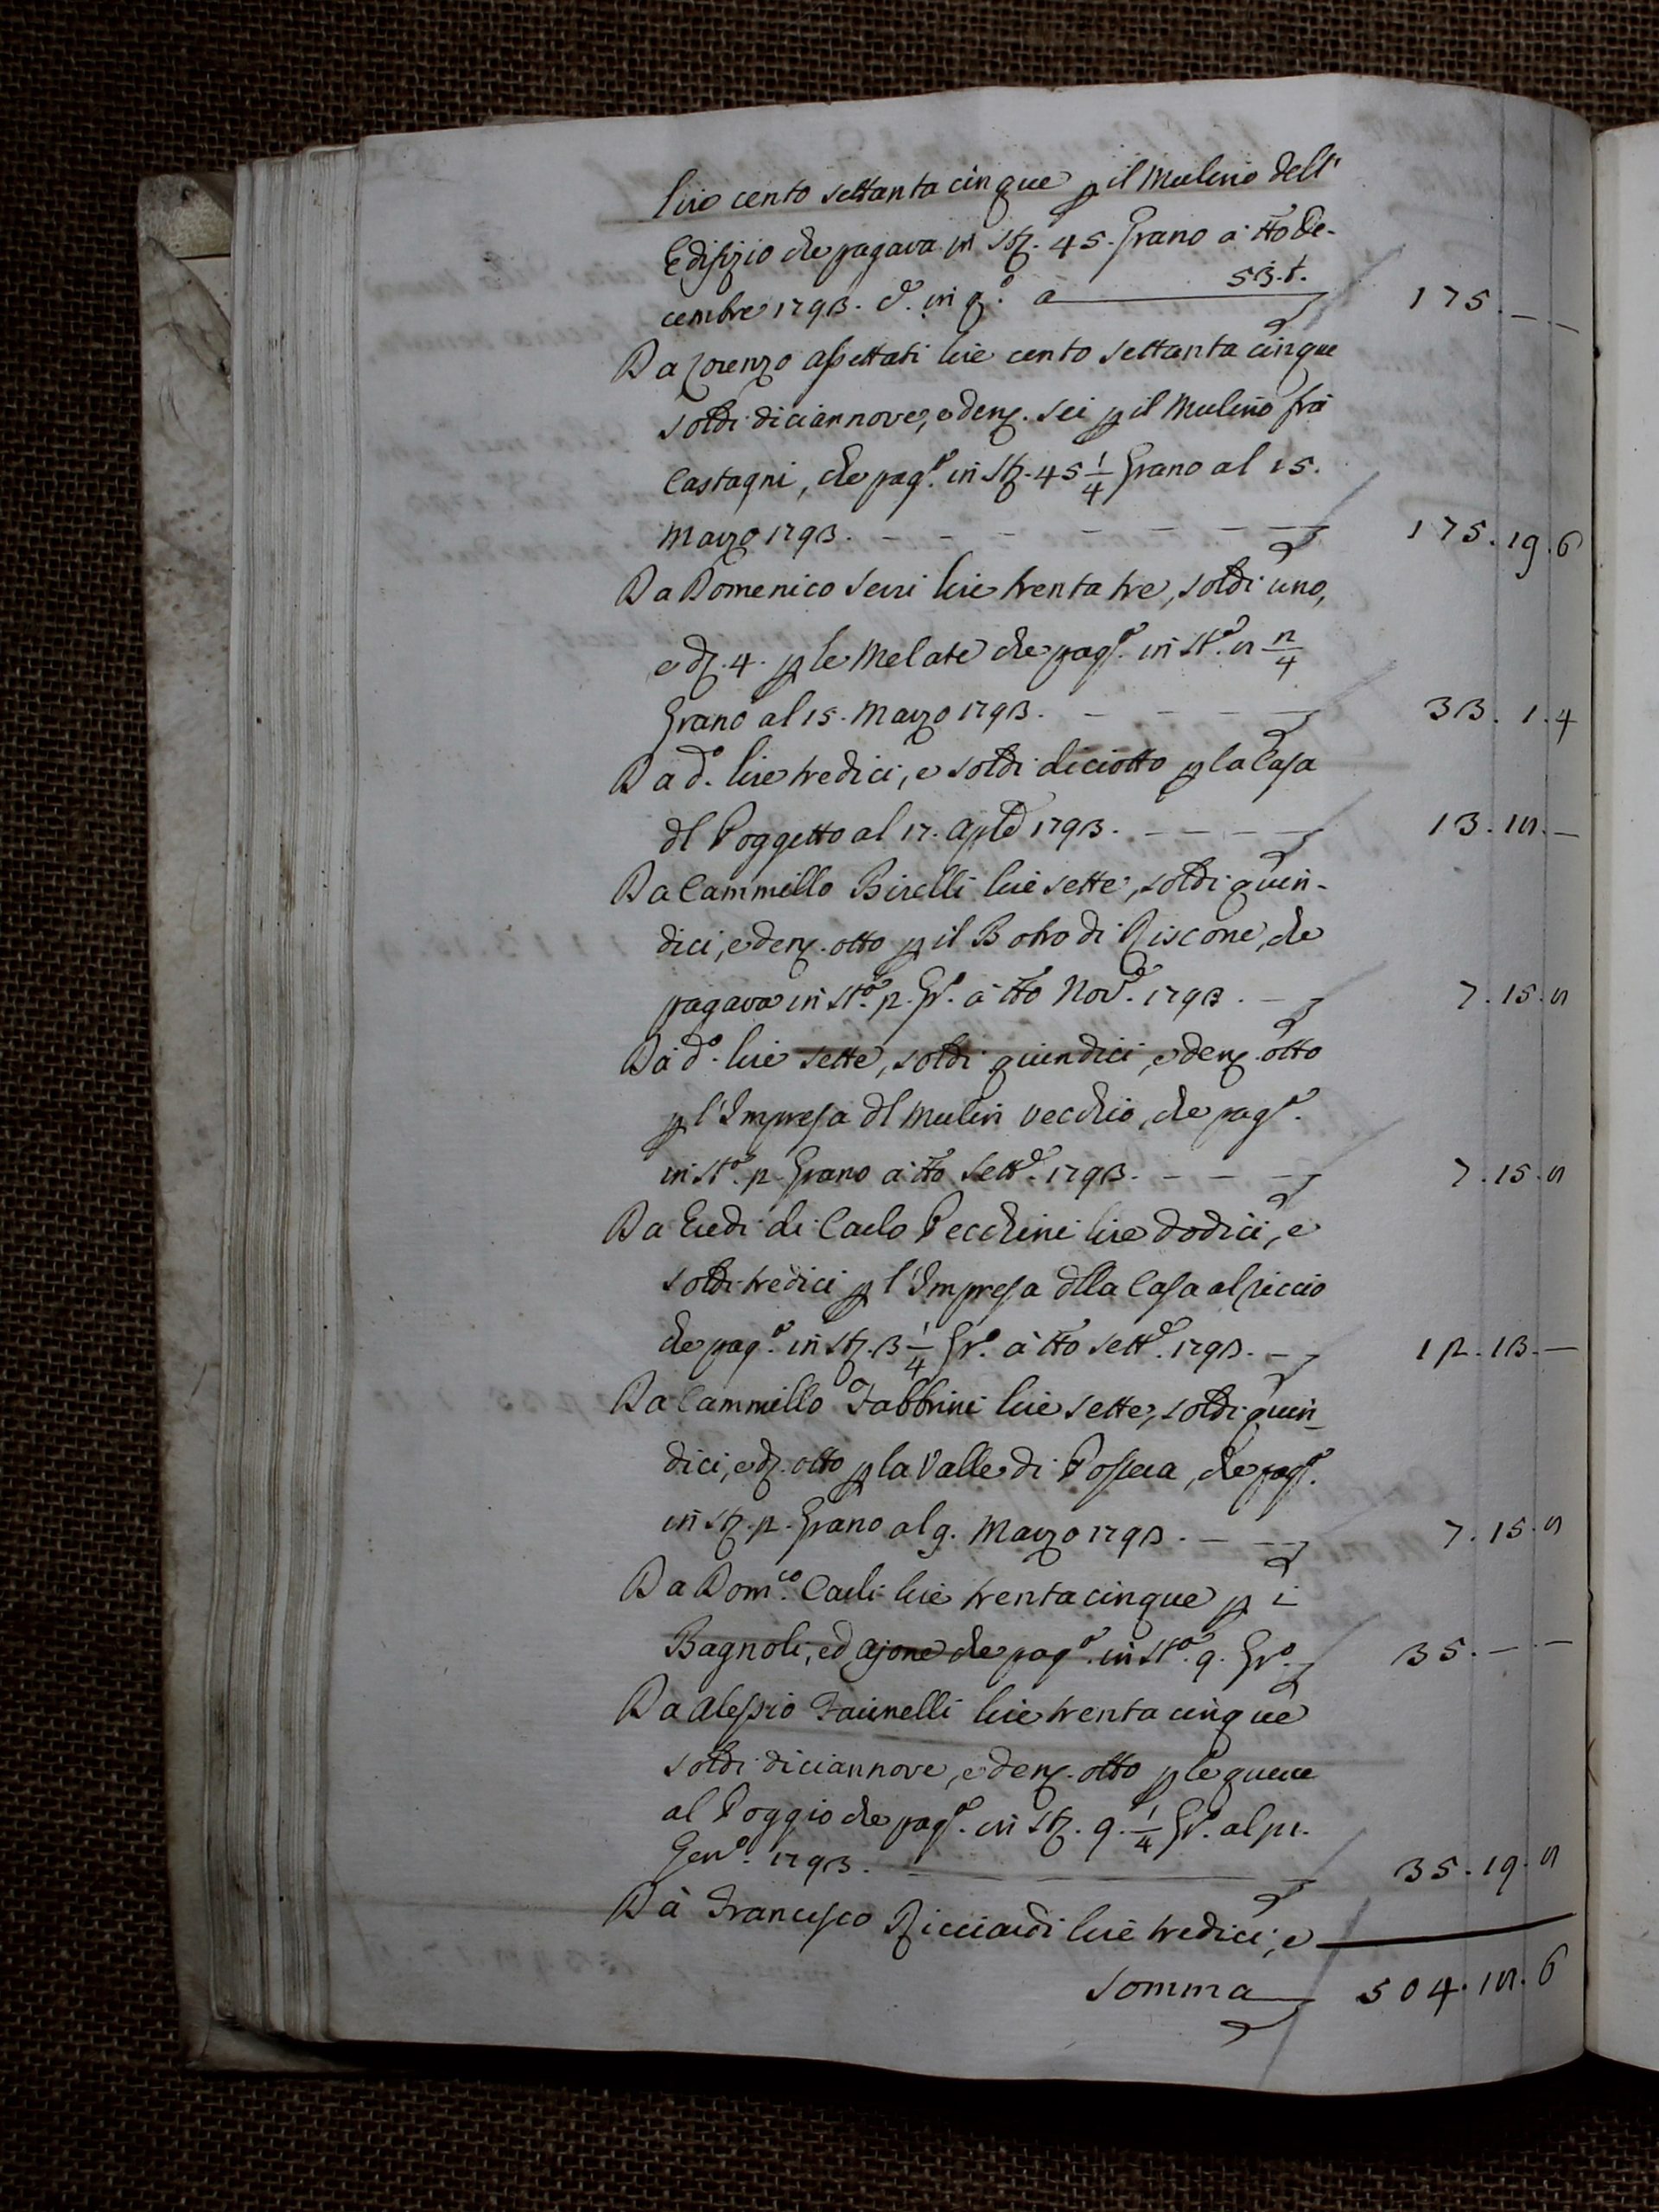 lire cento settanta cinque p il Mulino dell'
Edifizio che pagava in Stz. 45. Grano a tto De-
cembre 1793. d.º in q.º a 53.t. 175. — —
Da Lorenzo Aspettati lire cento settanta cinque
soldi diciannove, e denz. sei p il Mulino frà
Castagni, che pag.ª in Stz. 45 1/4 Grano al 15.
Marzo 1793. — — — — — — 175. 19. 6
Da Domenico Serri lire trenta tre, soldi uno,
e dz. 4. p le Melate che pag.ª in St.ª 8 2/4
Grano al 15. Marzo 1793. — — — — 33. 1. 4
Da d.º lire tredici, e soldi diciotto p la Casa
dl Poggetto al 17. Aple 1793. — — — — 13. 18. —
Da Cammillo Birelli lire sette, soldi quin-
dici, e denz. otto p il Botro di Riscone, che
pagava in St.ª 2. Gr.º a tto Nov.e 1793. — 7. 15. 8
Da d.º lire sette, soldi quindici, e denz. otto
p l'Impresa dl Mulin vecchio, che pag.ª
in St.ª 2. Grano a tto Sett.e 1793. — — — 7. 15. 8
Da Eredi di Carlo Pecchini lire dodici, e
soldi tredici p l'Impresa dlla Casa al Riccio
che pag.ª in Stz. 3 1/4 Gr.º a tto Sett.e 1793. — 12. 13. —
Da Cammillo Fabbrini lire sette, soldi quin-
dici, e dz. otto p la Valle di Possera, che pag.ª
in Stz. 2. Grano al 9. Marzo 1793. — — 7. 15. 8
Da Dom.co Carli lire trentacinque p i
Bagnoli, ed Ajone che pag.ª in St.ª 9. Gr.º 35. — —
Da Alessio Fainelli lire trenta cinque
soldi diciannove, e denz. otto p le querce
al Poggio che pag.ª in Stz. 9. 1/4 Gr.º al p.
Gen.º 1793. — — — — 35. 19. 8
Da Francesco Ricciardi lire tredici, e
Somma 504. 18. 6